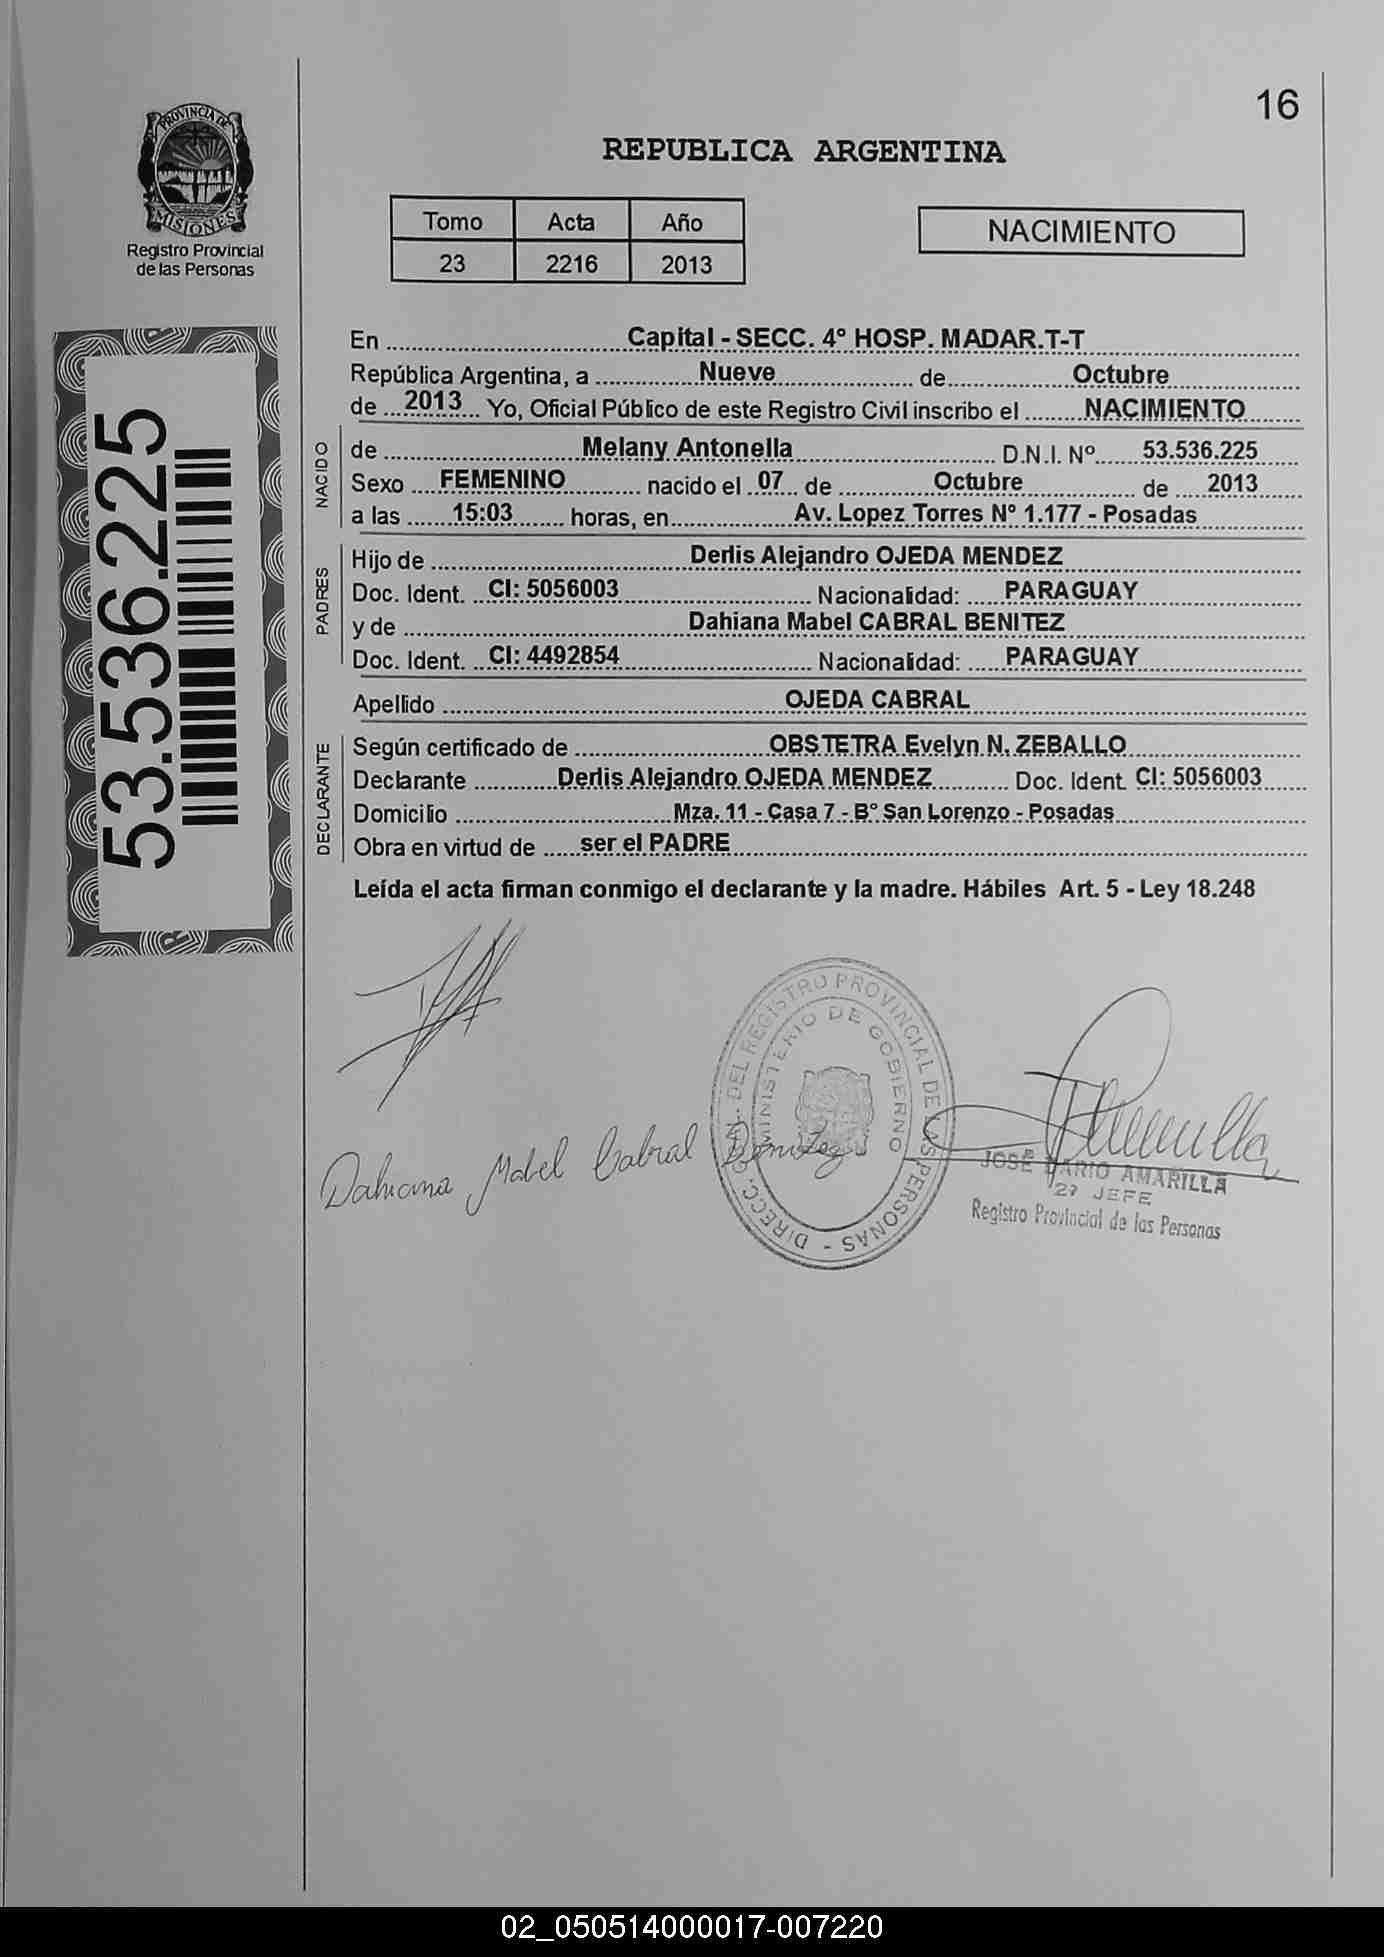 16
PROVINCIA DE
MISIONES
Registro Provincial
de las Personas
REPUBLICA ARGENTINA
Tomo Acta Año
23 2216 2013
NACIMIENTO
53.536.225
En Capital - SECC. 4º HOSP. MADAR.T-T
República Argentina, a Nueve de Octubre
de 2013 Yo, Oficial Público de este Registro Civil inscribo el NACIMIENTO
NACIDO
de Melany Antonella D.N.I. Nº 53.536.225
Sexo FEMENINO nacido el 07 de Octubre de 2013
a las 15:03 horas, en Av. Lopez Torres Nº 1.177 - Posadas
PADRES
Hijo de Derlis Alejandro OJEDA MENDEZ
Doc. Ident. CI: 5056003 Nacionalidad: PARAGUAY
y de Dahiana Mabel CABRAL BENITEZ
Doc. Ident. CI: 4492854 Nacionalidad: PARAGUAY
Apellido OJEDA CABRAL
DECLARANTE
Según certificado de OBSTETRA Evelyn N. ZEBALLO
Declarante Derlis Alejandro OJEDA MENDEZ Doc. Ident. CI: 5056003
Domicilio Mza. 11 - Casa 7 - B° San Lorenzo - Posadas
Obra en virtud de ser el PADRE
Leída el acta firman conmigo el declarante y la madre. Hábiles Art. 5 - Ley 18.248
DIRECC. GRAL. DEL REGISTRO PROVINCIAL DE LAS PERSONAS -
MINISTERIO DE GOBIERNO
Dahiana Mabel Cabral Benitez
JOSÉ DARIO AMARILLA
2º JEFE
Registro Provincial de las Personas
02_050514000017-007220